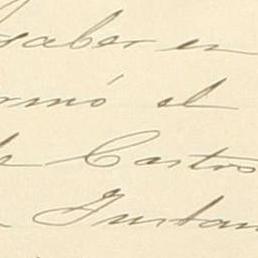 saber en
rmó el
de Castro
Gustav